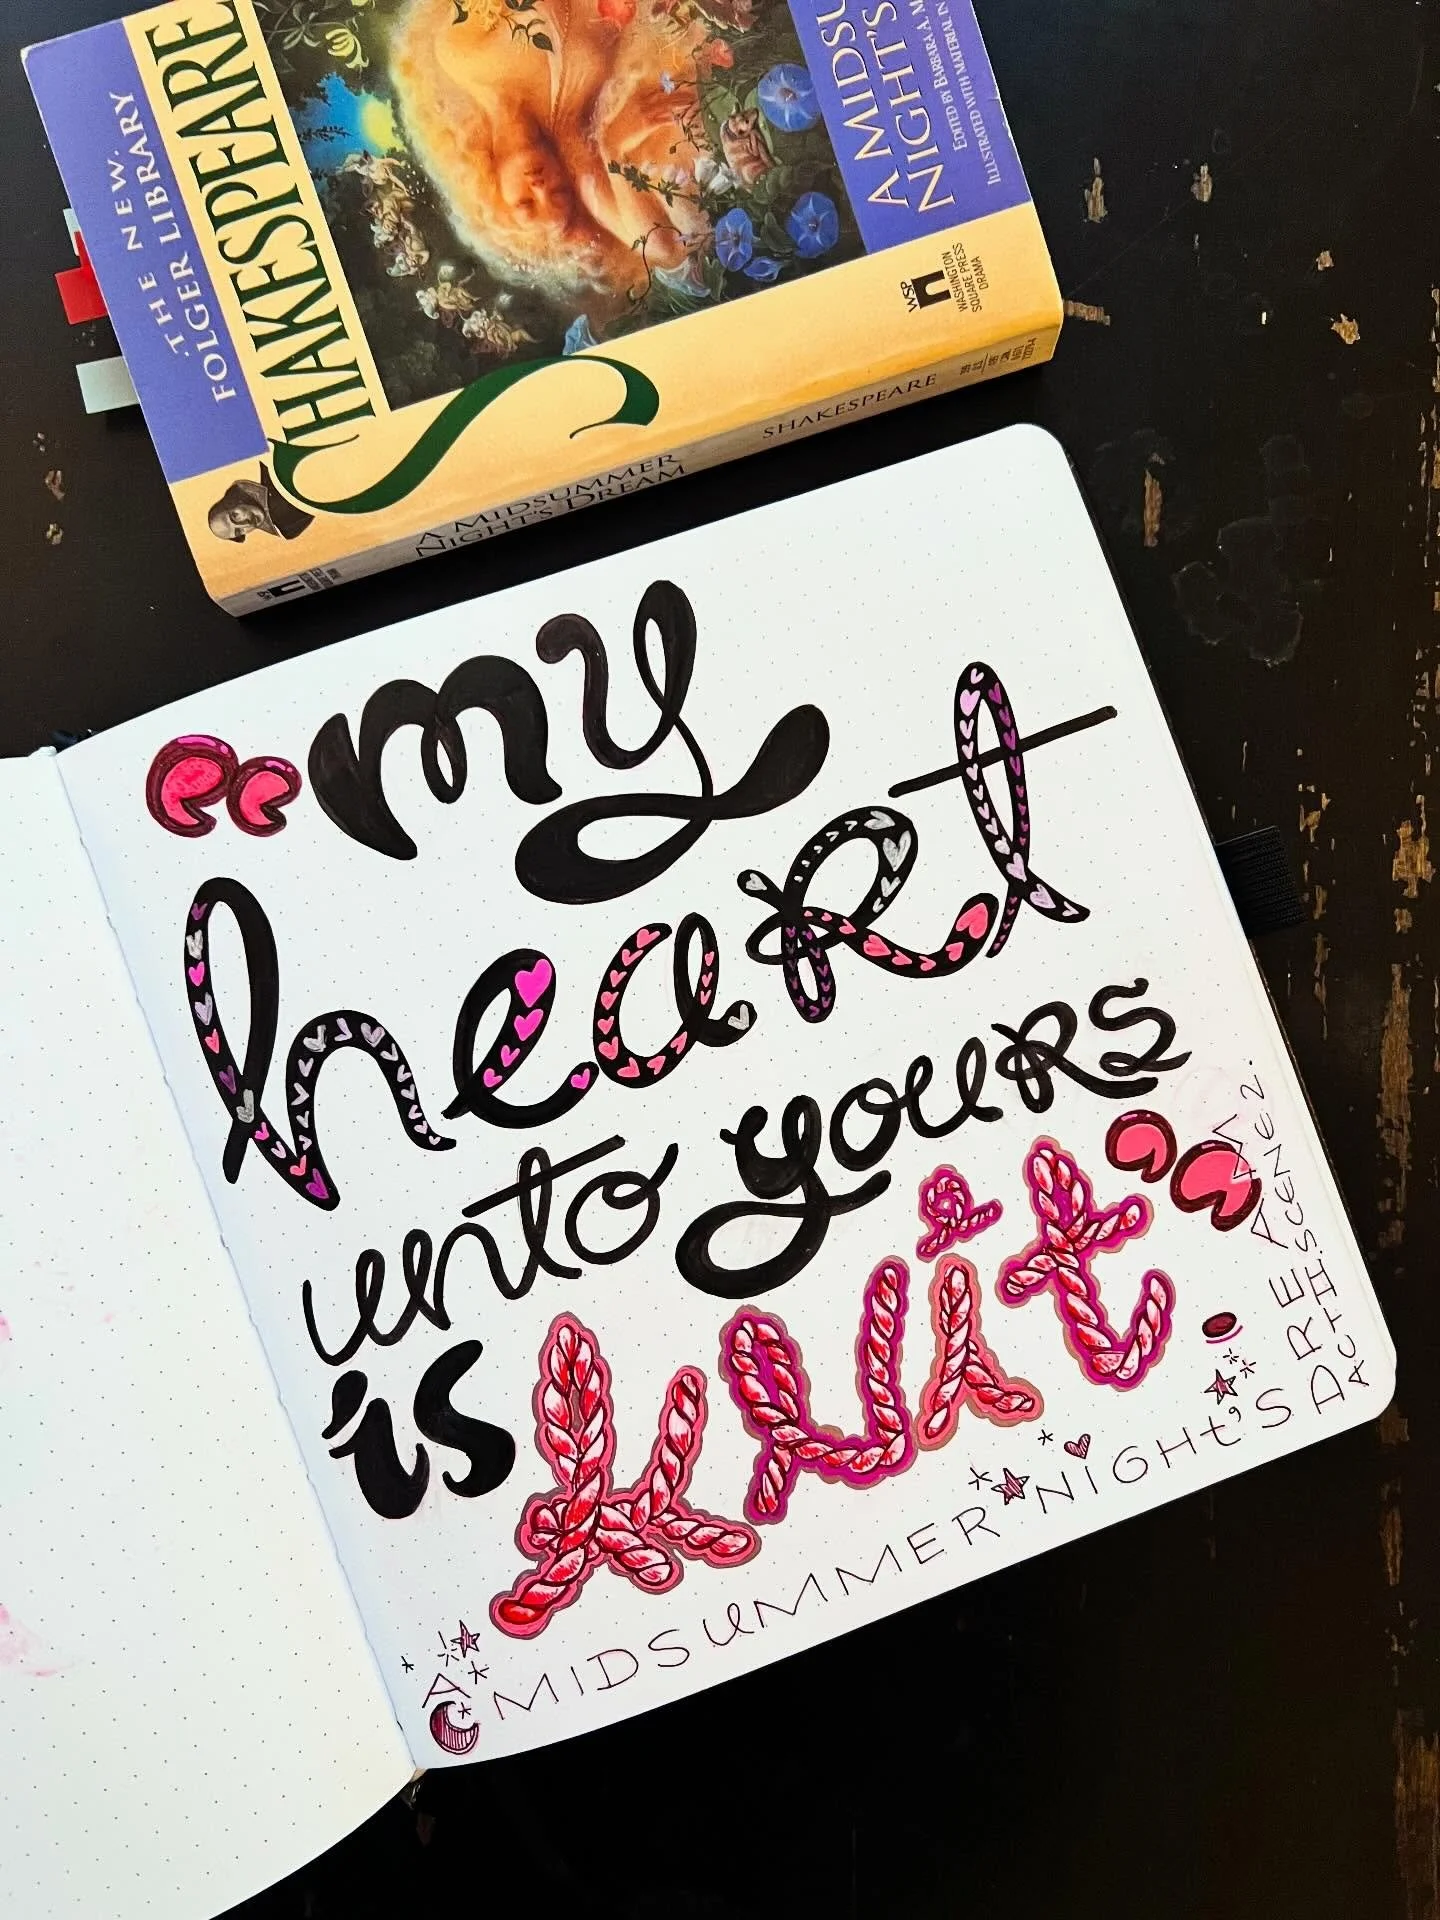 THE NEW
FOLGER LIBRARY
SHAKESPEARE
A MIDSU
NIGHT'S
EDITED BY BARBARA A. M
ILLUSTRATED WITH MATERIAL IN
WSP
WASHINGTON
SQUARE PRESS
DRAMA
A MIDSUMMER
NIGHT'S DREAM
SHAKESPEARE
“my
heart
unto yours
is knit”.
A MIDSUMMER NIGHt'S DREAM
ACT II. SCENE 2.